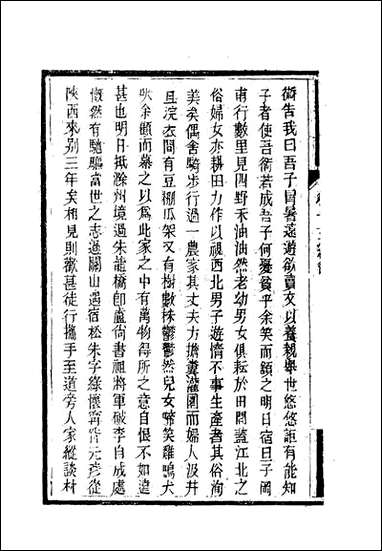 術告我曰吾子冒暑遠遊欲賣文以養親舉世悠悠詎有能知
子者使吾術若成吾子何憂貧乎余笑而頷之明日宿旦子岡
甫行數里見四野禾油油然老幼男女俱耘於田間蓋江北之
俗婦女亦耕田力作以視西北男子遊惰不事生產者其俗洵
美矣偶舍騎步行過一農家其丈夫方擔糞灌園而婦人汲井
且浣衣間有豆棚瓜架又有樹數株鬱鬱然兒女啼笑雞鳴犬
吠余顧而慕之以爲此家之中有萬物得所之意自恨不如遠
甚也明日抵滁州境過朱龍橋卽盧尙書祖將軍破李自成處
慨然有馳驅當世之志過關山遇宿松朱字綠懷甯昝元彥從
陝西來別三年矣相見則歡甚徒行攜手至道旁人家縱談村